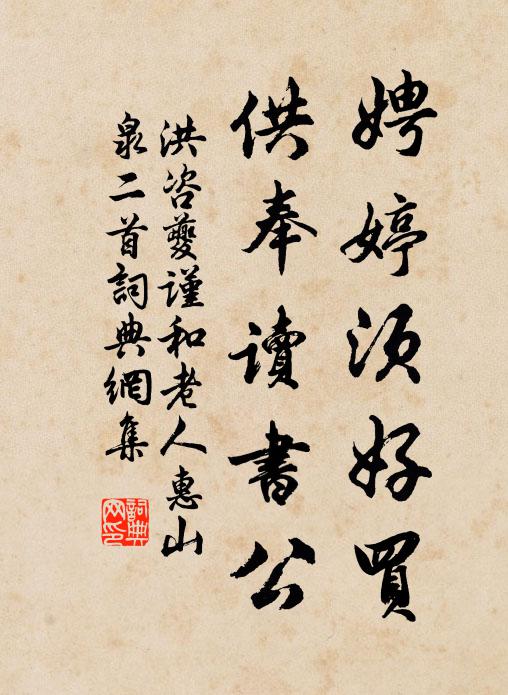 娉婷須好買
供奉讀書公
洪咨夔謹和老人惠山
泉二首詞典網集
詞典網印